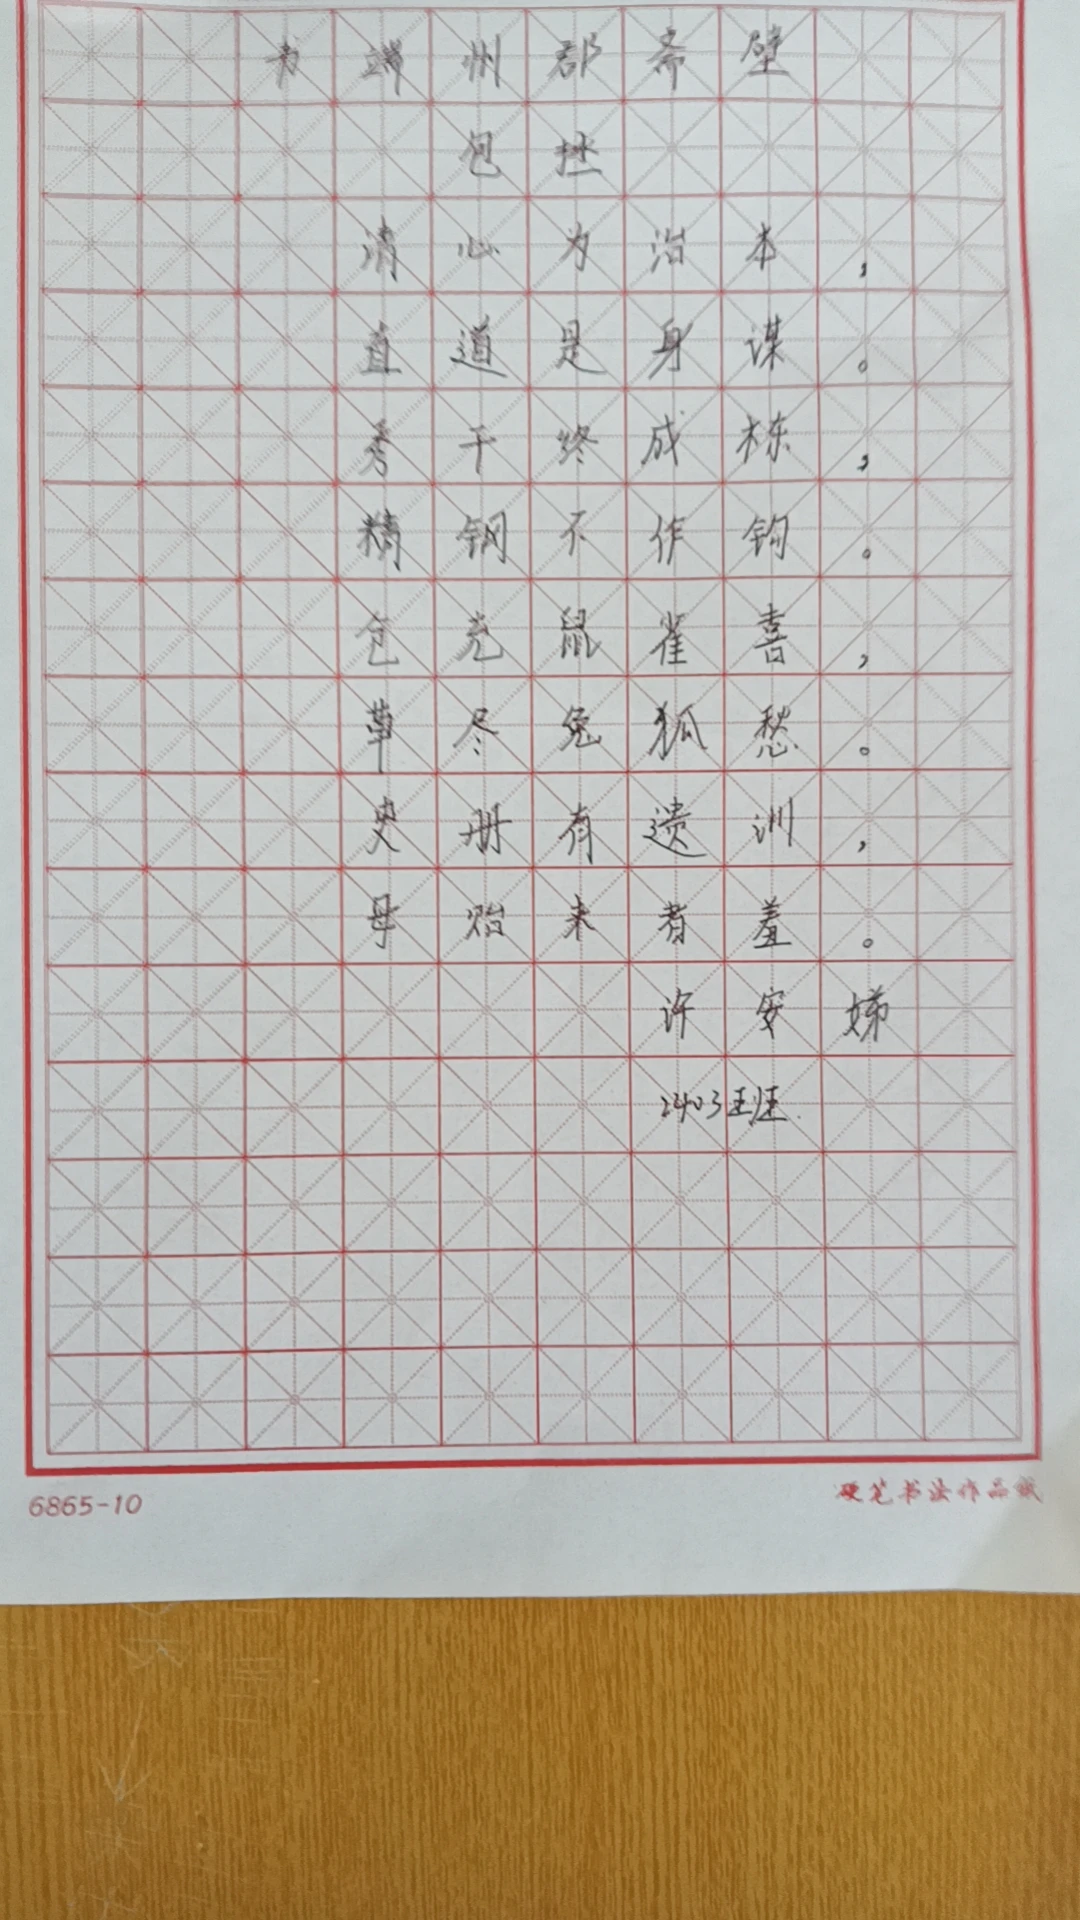 书端州郡斋壁
包拯
清心为治本，
直道是身谋。
秀干终成栋，
精钢不作钩。
仓充鼠雀喜，
草尽兔狐愁。
史册有遗训，
毋贻来者羞。
许安娣
2403班.
6865-10
硬笔书法作品纸